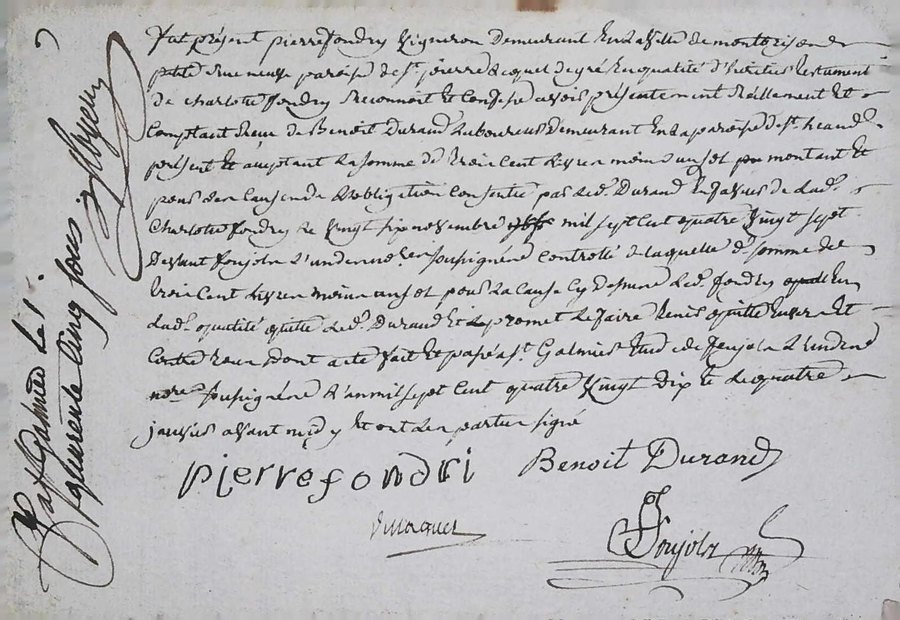 fut présent pierre fondry vigneron demeurant en la ville de montbrison
petite rue neuve paroisse de st. pierre lequel de gré en qualité d'héritier testament
de charlotte fondry reconnoit et confesse avoir présentement réellement et
comptant reçu de Benoit Durand laboureur demeurant en la paroisse de st.
présent et acceptant la somme de trois cent livres moins un sol montant et
pour les causes de l'obligation consentie par led. Durand en faveur de lad.
Charlotte fondry le vingt six novembre mil sept cent quatre vingt sept
devant foujols l'un de nore. soussigné controllé de laquelle d. somme de
trois cent livres moins un sol pour la cause cy dessus led. fondry en
lad. qualité quitte led. Durand et le promet le faire tenir quitte envers et
contre tous dont acte fait et passé a st. Galmier etude de foujols l'un des
nore. soussigné l'an mil sept cent quatre vingt dix le quatre
janvier avant midy et ont les parties signé
pierre fondri Benoit Durand
foujols
st Galmier le
quarente cinq sous